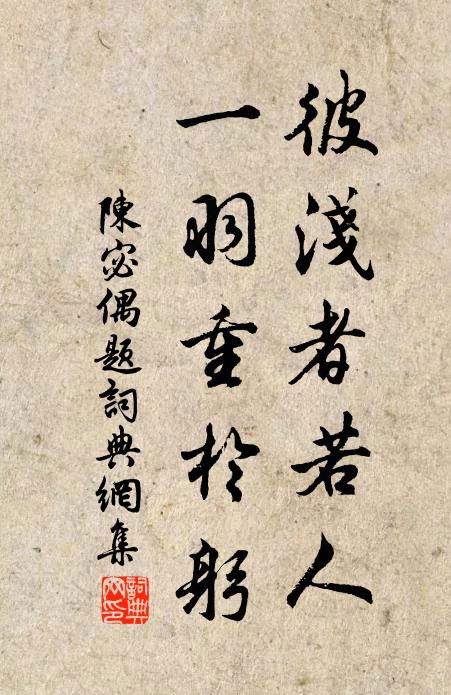 彼淺者若人
一羽重於躬
陳宓偶題詞典網集
詞典網印